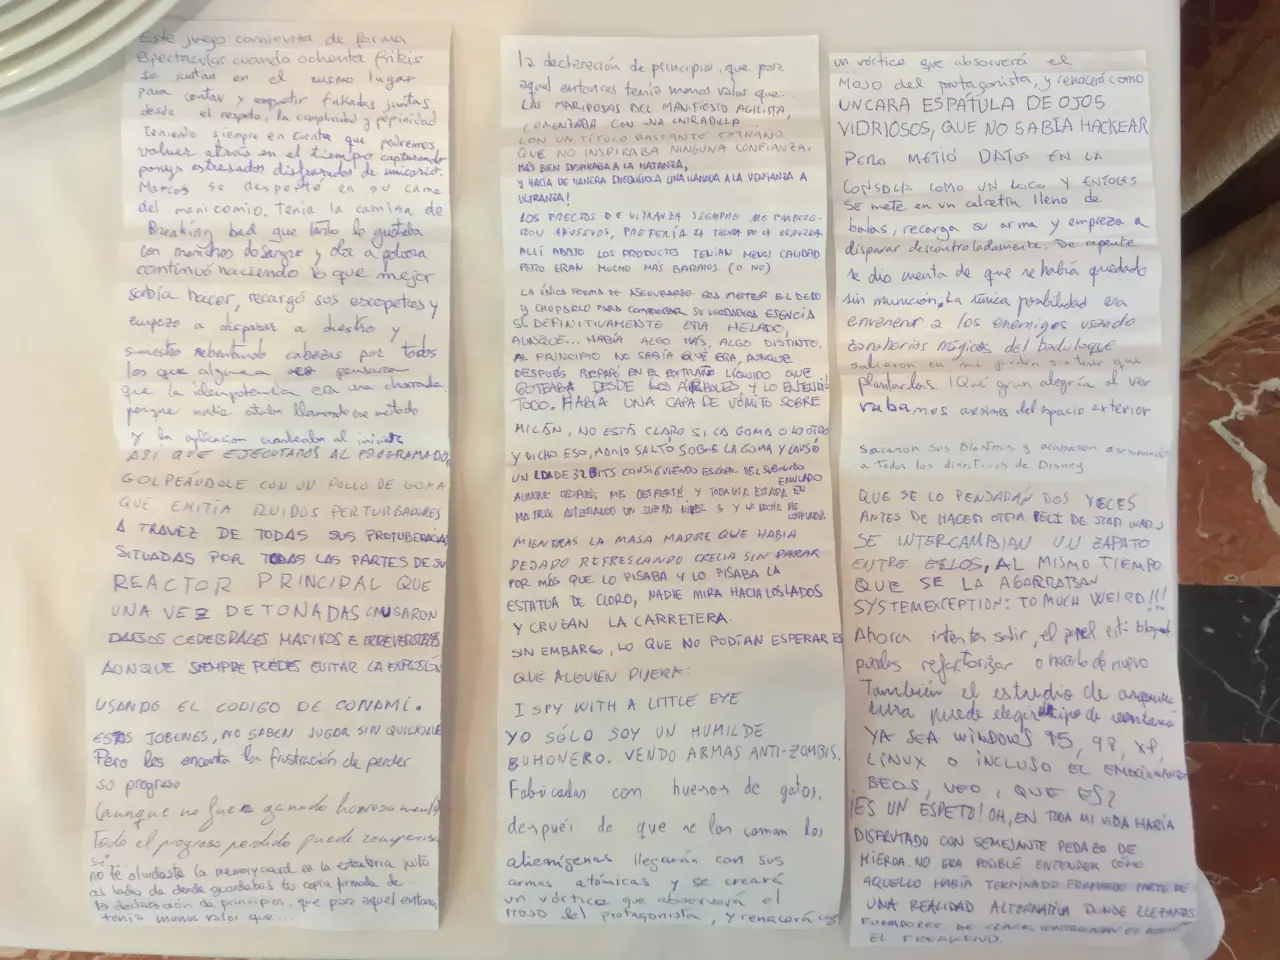 Este juego comienza de forma
espectacular cuando ochenta frikis
se juntan en el mismo lugar
para contar y compartir frikadas juntas
desde el respeto, la complicidad y pepinidad
teniendo siempre en cuenta que podremos
volver atrás en el tiempo capturando
ponys estresados disfrazados de unicornio.
Marcos se despertó en su cama
del manicomio. Tenía la camisa de
Breaking bad que tanto le gustaba
con manchas de sangre y olor a polvora
continuó haciendo lo que mejor
sabía hacer, recargó sus escopetas y
empezo a disparar a diestro y
siniestro reventando cabezas por todos
los que alguna vez pensaron
que la idempotencia era una chorrada
porque nadie estaba llamando ese método
y la aplicacion crasheaba al iniciar
ASI QUE EJECUTAROS AL PROGRAMADOR
GOLPEÁNDOLE CON UN POLLO DE GOMA
QUE EMITÍA RUIDOS PERTURBADORES
A TRAVEZ DE TODAS SUS PROTUBERACIAS
SITUADAS POR TODAS LAS PARTES DE SU
REACTOR PRINCIPAL QUE
UNA VEZ DETONADAS CAUSARON
DAÑOS CEREBRALES MASIVOS E IRREVERSIBLES
AUNQUE SIEMPRE PUEDES EVITAR LA EXPLOSIÓN
USANDO EL CODIGO DE CONAMI.
ESTOS JOBENES, NO SABEN JUGAR SIN QUICKSAVE
Pero les encanta la frustración de perder
su progreso
(aunque no fuera ganado honrosamente)
Todo el progreso perdido puede recuperarse
si no te olvidaste la memory card en la estantería justo
al lado de donde guardabas tu copia firmada de...
la declaración de principios, que para aquel entonces
tenía menos valor que...
la declaración de principios, que para
aquel entonces tenía menos valor que...
LAS MARIPOSAS DEL MANIFIESTO AGILISTA,
COMENZABA CON UNA ENTRADILLA...
CON UN TÍTULO BASTANTE EXTRAÑO
QUE NO INSPIRABA NINGUNA CONFIANZA.
MÁS BIEN INSPIRABA A LA MATANZA,
Y HACÍA DE MANERA INEQUÍVOCA UNA LLAMADA A LA VENGANZA A
ULTRANZA!
LOS PRECIOS DE ULTRANZA SIEMPRE ME PARECIE-
RON ABUSIVOS, PREFERÍA LA TIENDA DE LA ESQUINA
ALLÍ ABAJO LOS PRODUCTOS TENÍAN MENOS CALIDAD
PERO ERAN MUCHO MÁS BARATOS (O NO)
LA ÚNICA FORMA DE ASEGURARSE ERA METER EL DEDO
Y CHUPARLO PARA COMPROBAR SU VERDADERA ESENCIA
SI, DEFINITIVAMENTE ERA HELADO,
AUNQUE... HABÍA ALGO MÁS, ALGO DISTINTO.
AL PRINCIPIO NO SABÍA QUÉ ERA, AUNQUE
DESPUÉS REPARÓ EN EL EXTRAÑO LÍQUIDO QUE
GOTEABA DESDE LOS ÁRBOLES Y LO ENTENDIÓ
TODO. HABÍA UNA CAPA DE VÓMITO SOBRE
MILÁN, NO ESTÁ CLARO SI LA GOMA O LO OTRO
Y DICHO ESO, MARIO SALTÓ SOBRE LA GOMA Y CAUSÓ
UN LDA DE 32 BITS CONSIGUIENDO ESCAPAR DEL SUBMUNDO
EMULADO
AUNQUE DESPUÉS ME DESPERTÉ Y TODAVÍA ESTABA EN
MATRIX ALIMENTANDO UN SUEÑO NIVEL 3 Y LA NOCHE ME
CONFUNDÍA
MIENTRAS LA MASA MADRE QUE HABÍA
DEJADO REFRESCANDO CRECÍA SIN PARAR
POR MÁS QUE LO PISABA Y LO PISABA LA
ESTATUA DE CLORO, NADIE MIRA HACIA LOS LADOS
Y CRUZAN LA CARRETERA.
SIN EMBARGO, LO QUE NO PODÍAN ESPERAR ES
QUE ALGUIEN DIJERA:
I SPY WITH A LITTLE EYE
YO SÓLO SOY UN HUMILDE
BUHONERO. VENDO ARMAS ANTI-ZOMBIS.
Fabricadas con huesos de gatos,
después de que se los coman los
alienígenas llegarán con sus
armas atómicas y se creará
un vórtice que absorverá el
MOJO del protagonista, y renacerá como
un vórtice que absorverá el
MOJO del protagonista, y renacerá como
UN CARA ESPÁTULA DE OJOS
VIDRIOSOS, QUE NO SABÍA HACKEAR
PERO METIÓ DATOS EN LA
CONSOLA COMO UN LOCO Y ENTOCES
SE METE EN UN calcetín lleno de
balas, recarga su arma y empieza a
disparar descontroladamente. De repente
se dio cuenta de que se había quedado
sin munición. La única posibilidad era
envenenar a los enemigos usando
zanahorias mágicas del badulaque
salieron en mi jardín sin tener que
plantarlas. ¡Qué gran alegría al ver
rabanos asesinos del espacio exterior
sacaron sus blasters y acabaron asesinando
a todos los directivos de Disney
QUE SE LO PENSARÁN DOS VECES
ANTES DE HACER OTRA PELI DE STAR WARS
SE INTERCAMBIAN UN ZAPATO
ENTRE ELLOS, AL MISMO TIEMPO
QUE SE LA AGARRABAN
SYSTEMEXCEPTION: TO MUCH WEIRD!!!
Ahora intenta salir, el panel está bloqueado
puedes refactorizar o hacerlo de nuevo
También el estudio de arquitec
tura puede elegir el tipo de ventana
YA SEA WINDOWS 95, 98, XP,
LINUX O INCLUSO EL EMOCIONANTE
BEOS, VEO, ¿QUE ES?
¡ES UN ESPETO! OH, EN TODA MI VIDA HABÍA
DISFRUTADO CON SEMEJANTE PEDAZO DE
MIERDA. NO ERA POSIBLE ENTENDER CÓMO
AQUELLO HABÍA TERMINADO FORMANDO PARTE DE
UNA REALIDAD ALTERNATIVA DONDE
FUMADORES DE CRACK
EL FREAKEND.